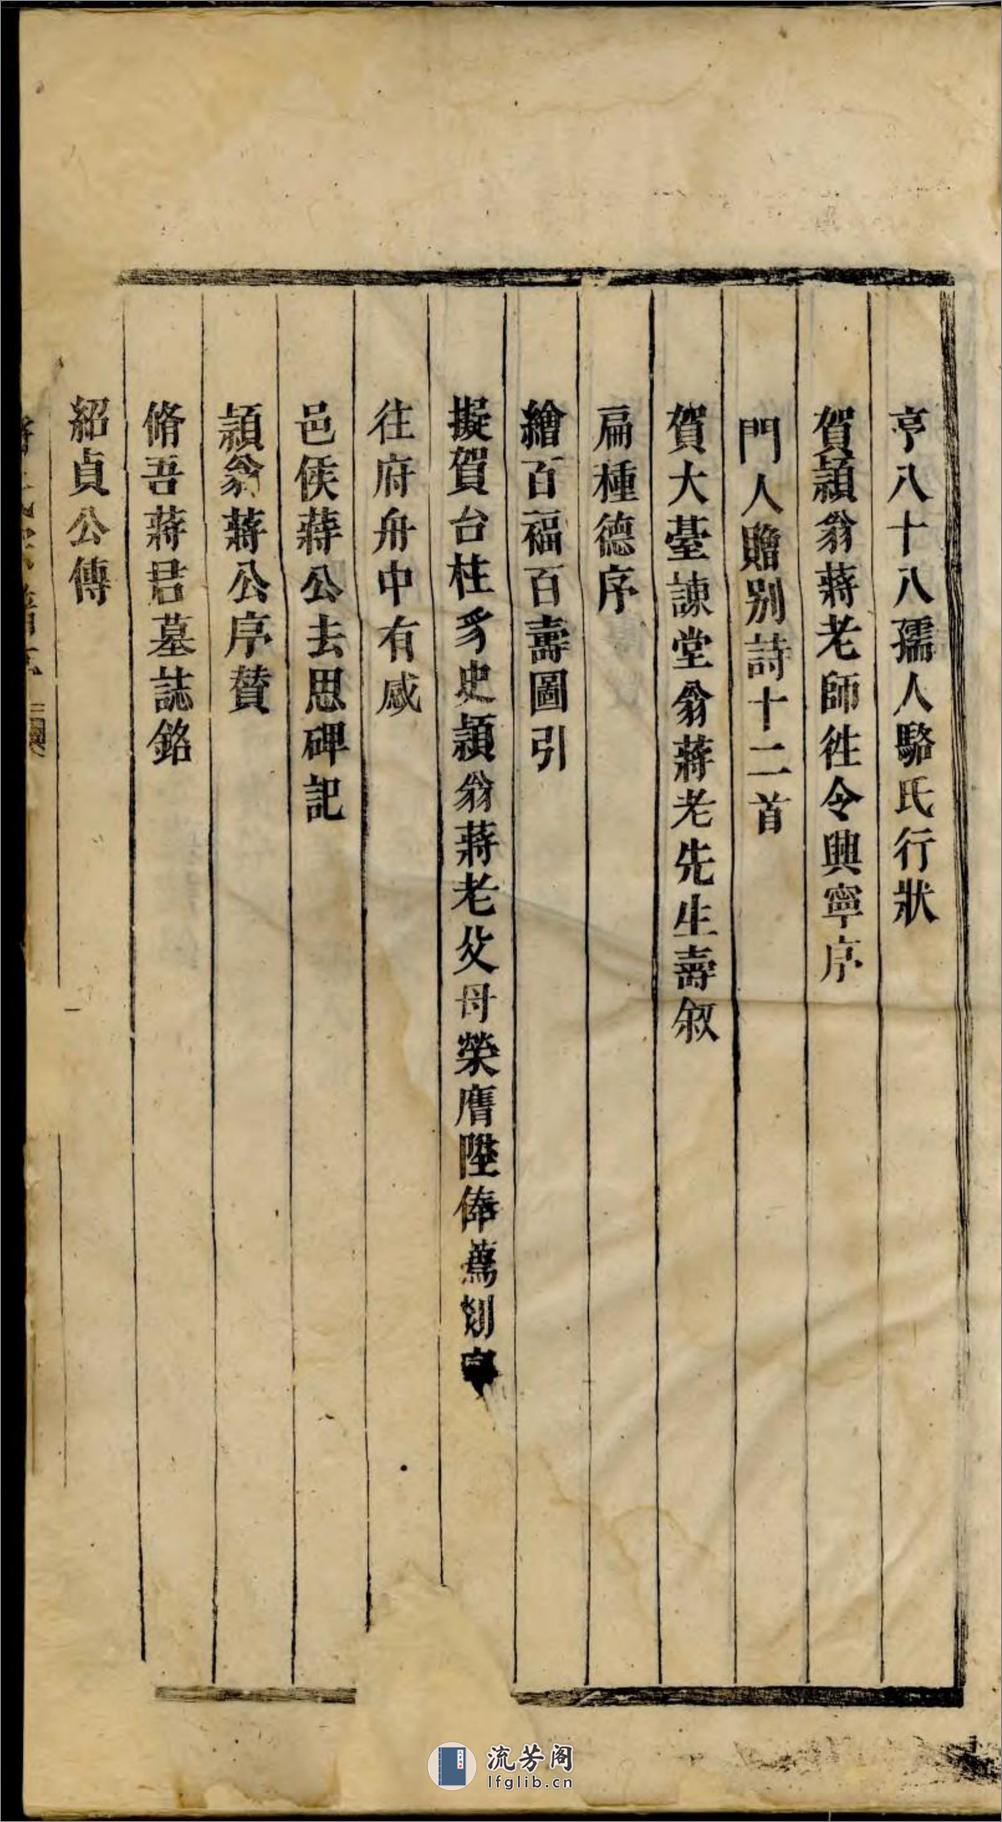 亨八十八孺人駱氏行狀
賀頴翁蔣老師徃令興寧序
門人贍别詩十二首
賀大臺諫堂翁蔣老先生壽叙
扁種德序
繪百福百壽圖引
擬賀台柱豸史頴翁蔣老父母榮膺陞俸薦剡序
往府舟中有感
邑侯蔣公去思碑記
頴翁蔣公序賛
脩吾蔣君墓誌銘
紹貞公傳
流芳阁
lfglib.cn